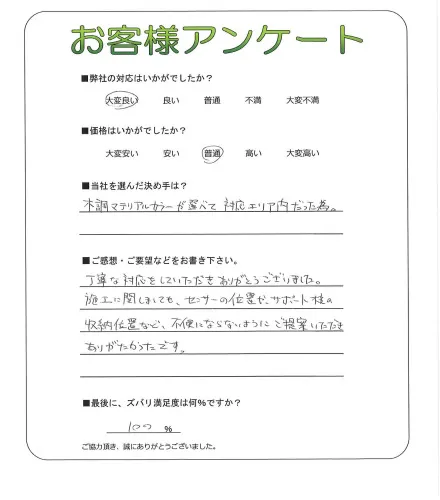 お客様アンケート
■弊社の対応はいかがでしたか？
大変良い 良い 普通 不満 大変不満
■価格はいかがでしたか？
大変安い 安い 普通 高い 大変高い
■当社を選んだ決め手は？
木調マテリアルカラーが選べて対応エリア内だった為。
■ご感想・ご要望などをお書き下さい。
丁寧な対応をしていただきありがとうございました。
施工に関しましても、センサーの位置や、サポート柱の
収納位置など、不便にならないようにご提案いただき
ありがたかったです。
■最後に、ズバリ満足度は何%ですか？
100 %
ご協力頂き、誠にありがとうございました。